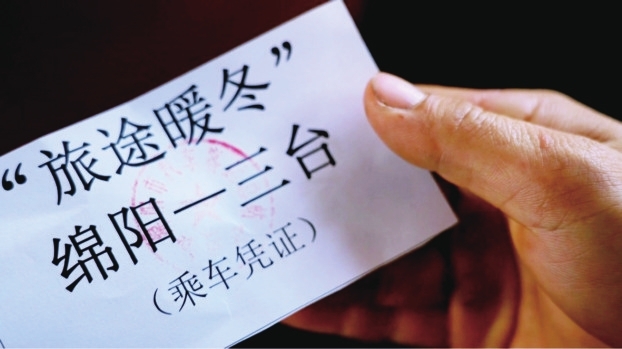 “旅途暖冬”
绵阳—三台
（乘车凭证）